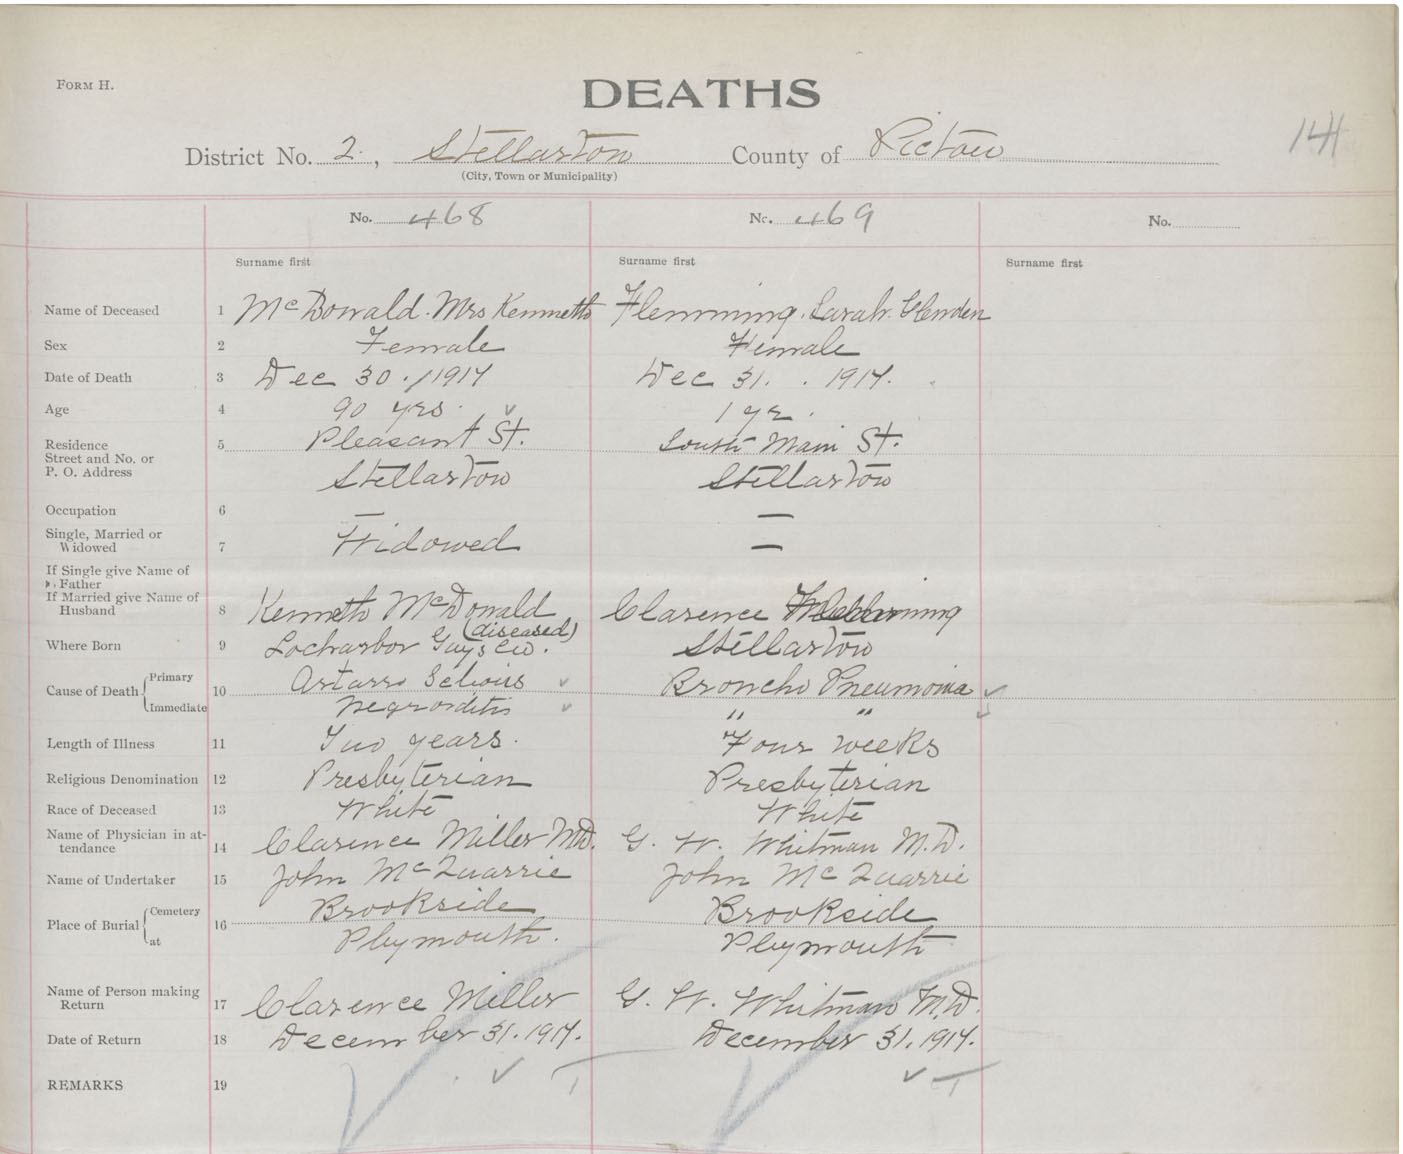 FORM H.
DEATHS
141
District No. 2., Stellarton County of Pictou
(City, Town or Municipality)
No. 468 No. 469 No.
Surname first Surname first Surname first
Name of Deceased 1 McDonald. Mrs Kenneth Flemming. Sarah.
Sex 2 Female Female
Date of Death 3 Dec 30. 1917 Dec 31. 1917.
Age 4 90 yrs. 1 yr.
Residence 5 Pleasant St. South Main St.
Street and No. or
P. O. Address Stellarton Stellarton
Occupation 6 — —
Single, Married or
Widowed 7 Widowed —
If Single give Name of
Father
If Married give Name of
Husband 8 Kenneth McDonald Clarence
(diseased)
Where Born 9 Locharbor Guys Co. Stellarton
Cause of Death Primary 10 Broncho Pneumonia
Immediate " "
Length of Illness 11 Two years. Four weeks
Religious Denomination 12 Presbyterian Presbyterian
Race of Deceased 13 White White
Name of Physician in at-
tendance 14 Clarence Miller M.D. G. W. Whitman M.D.
Name of Undertaker 15 John McQuarrie John McQuarrie
Place of Burial Cemetery 16 Brookside Brookside
at Plymouth. Plymouth
Name of Person making
Return 17 Clarence Miller G. W. Whitman M.D.
Date of Return 18 December 31. 1917. December 31. 1917.
REMARKS 19